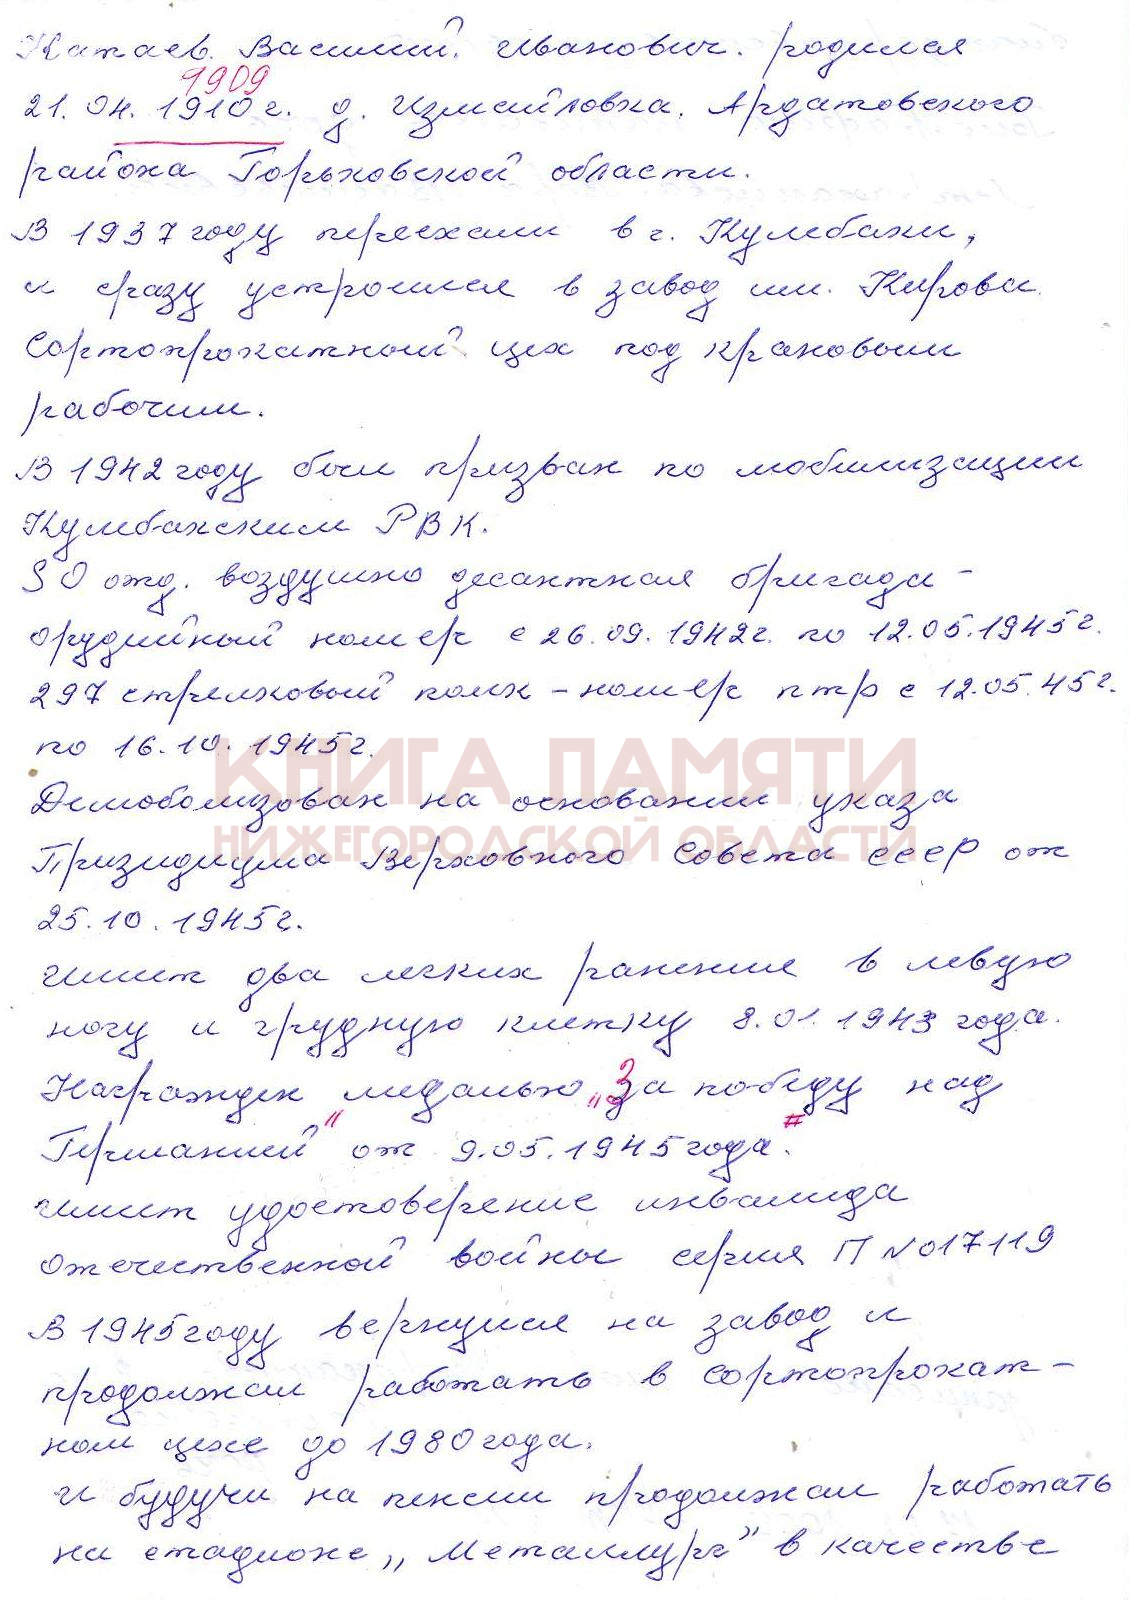 Катаев. Василий. Иванович. родился
1909
21.04.1910г. д. Измайловка. Ардатовского
района Горьковской области.
В 1937 году переехали в г. Кулебаки,
и сразу устроился в завод им. Кирова
Сортопрокатный цех под крановым
рабочим.
В 1942 году был призван по мобилизации
Кулебакским РВК.
50 отд. воздушно десантная бригада -
орудийный номер с 26.09.1942г. по 12.05.1945г.
297 стрелковый полк - номер птр с 12.05.45г.
по 16.10.1945г.
КНИГА ПАМЯТИ
НИЖЕГОРОДСКОЙ ОБЛАСТИ
Демоболизован на основании указа
Призидиума Верховного Совета СССР от
25.10.1945г.
Имеет два легких ранения в левую
ногу и грудную клетку 8.01.1943 года.
Награжден медалью „За победу над
Германией" от 9.05.1945 года.
Имеет удостоверение инвалида
отечественной войны серия П №017119
В 1945 году вернулся на завод и
продолжал работать в сортопрокат-
ном цехе до 1980 года.
И будучи на пенсии продолжал работать
на стадионе „Металлург" в качестве